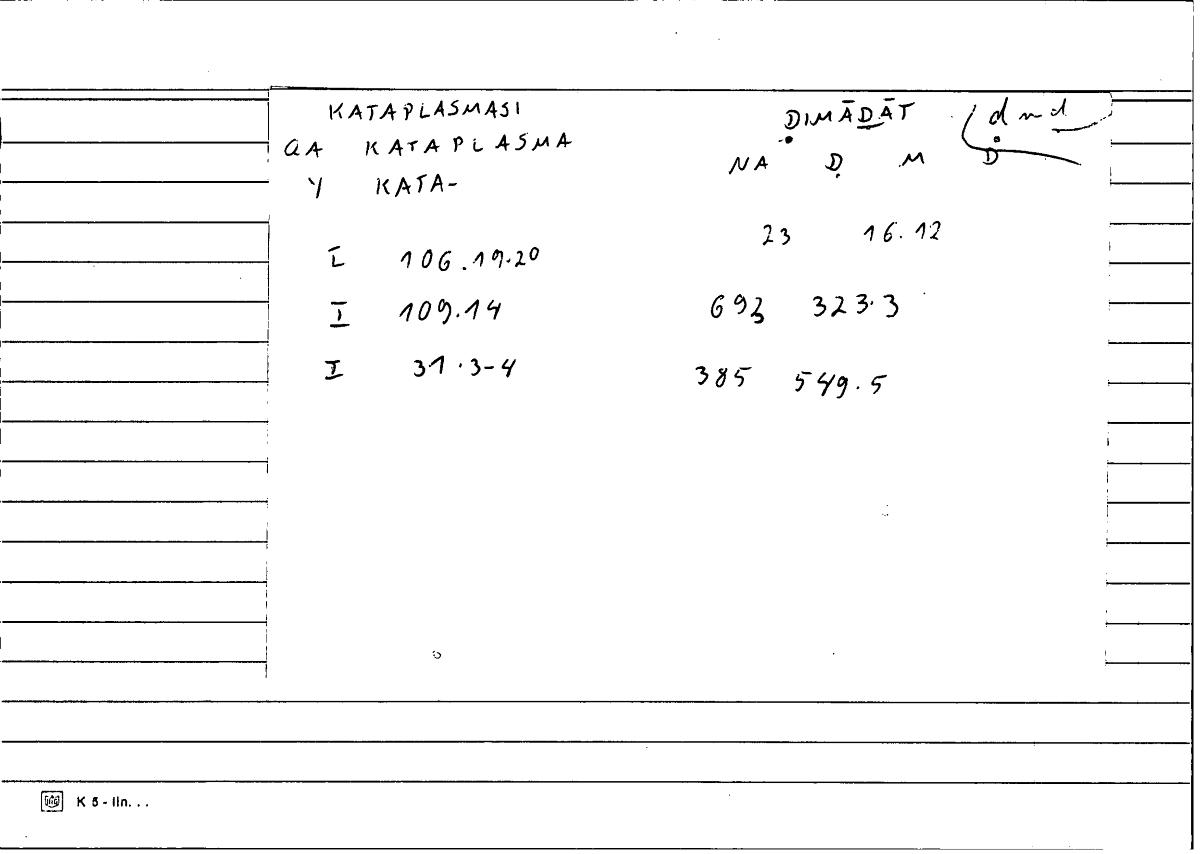 KATAPLASMASI ḌIMĀDĀT
QA KATAPLASMA NA Ḍ M D
Y KATA-
I 106.19.20 23 16.12
I 109.14 692 323.3
I 31.3-4 385 549.5
K 5 - lin. . .